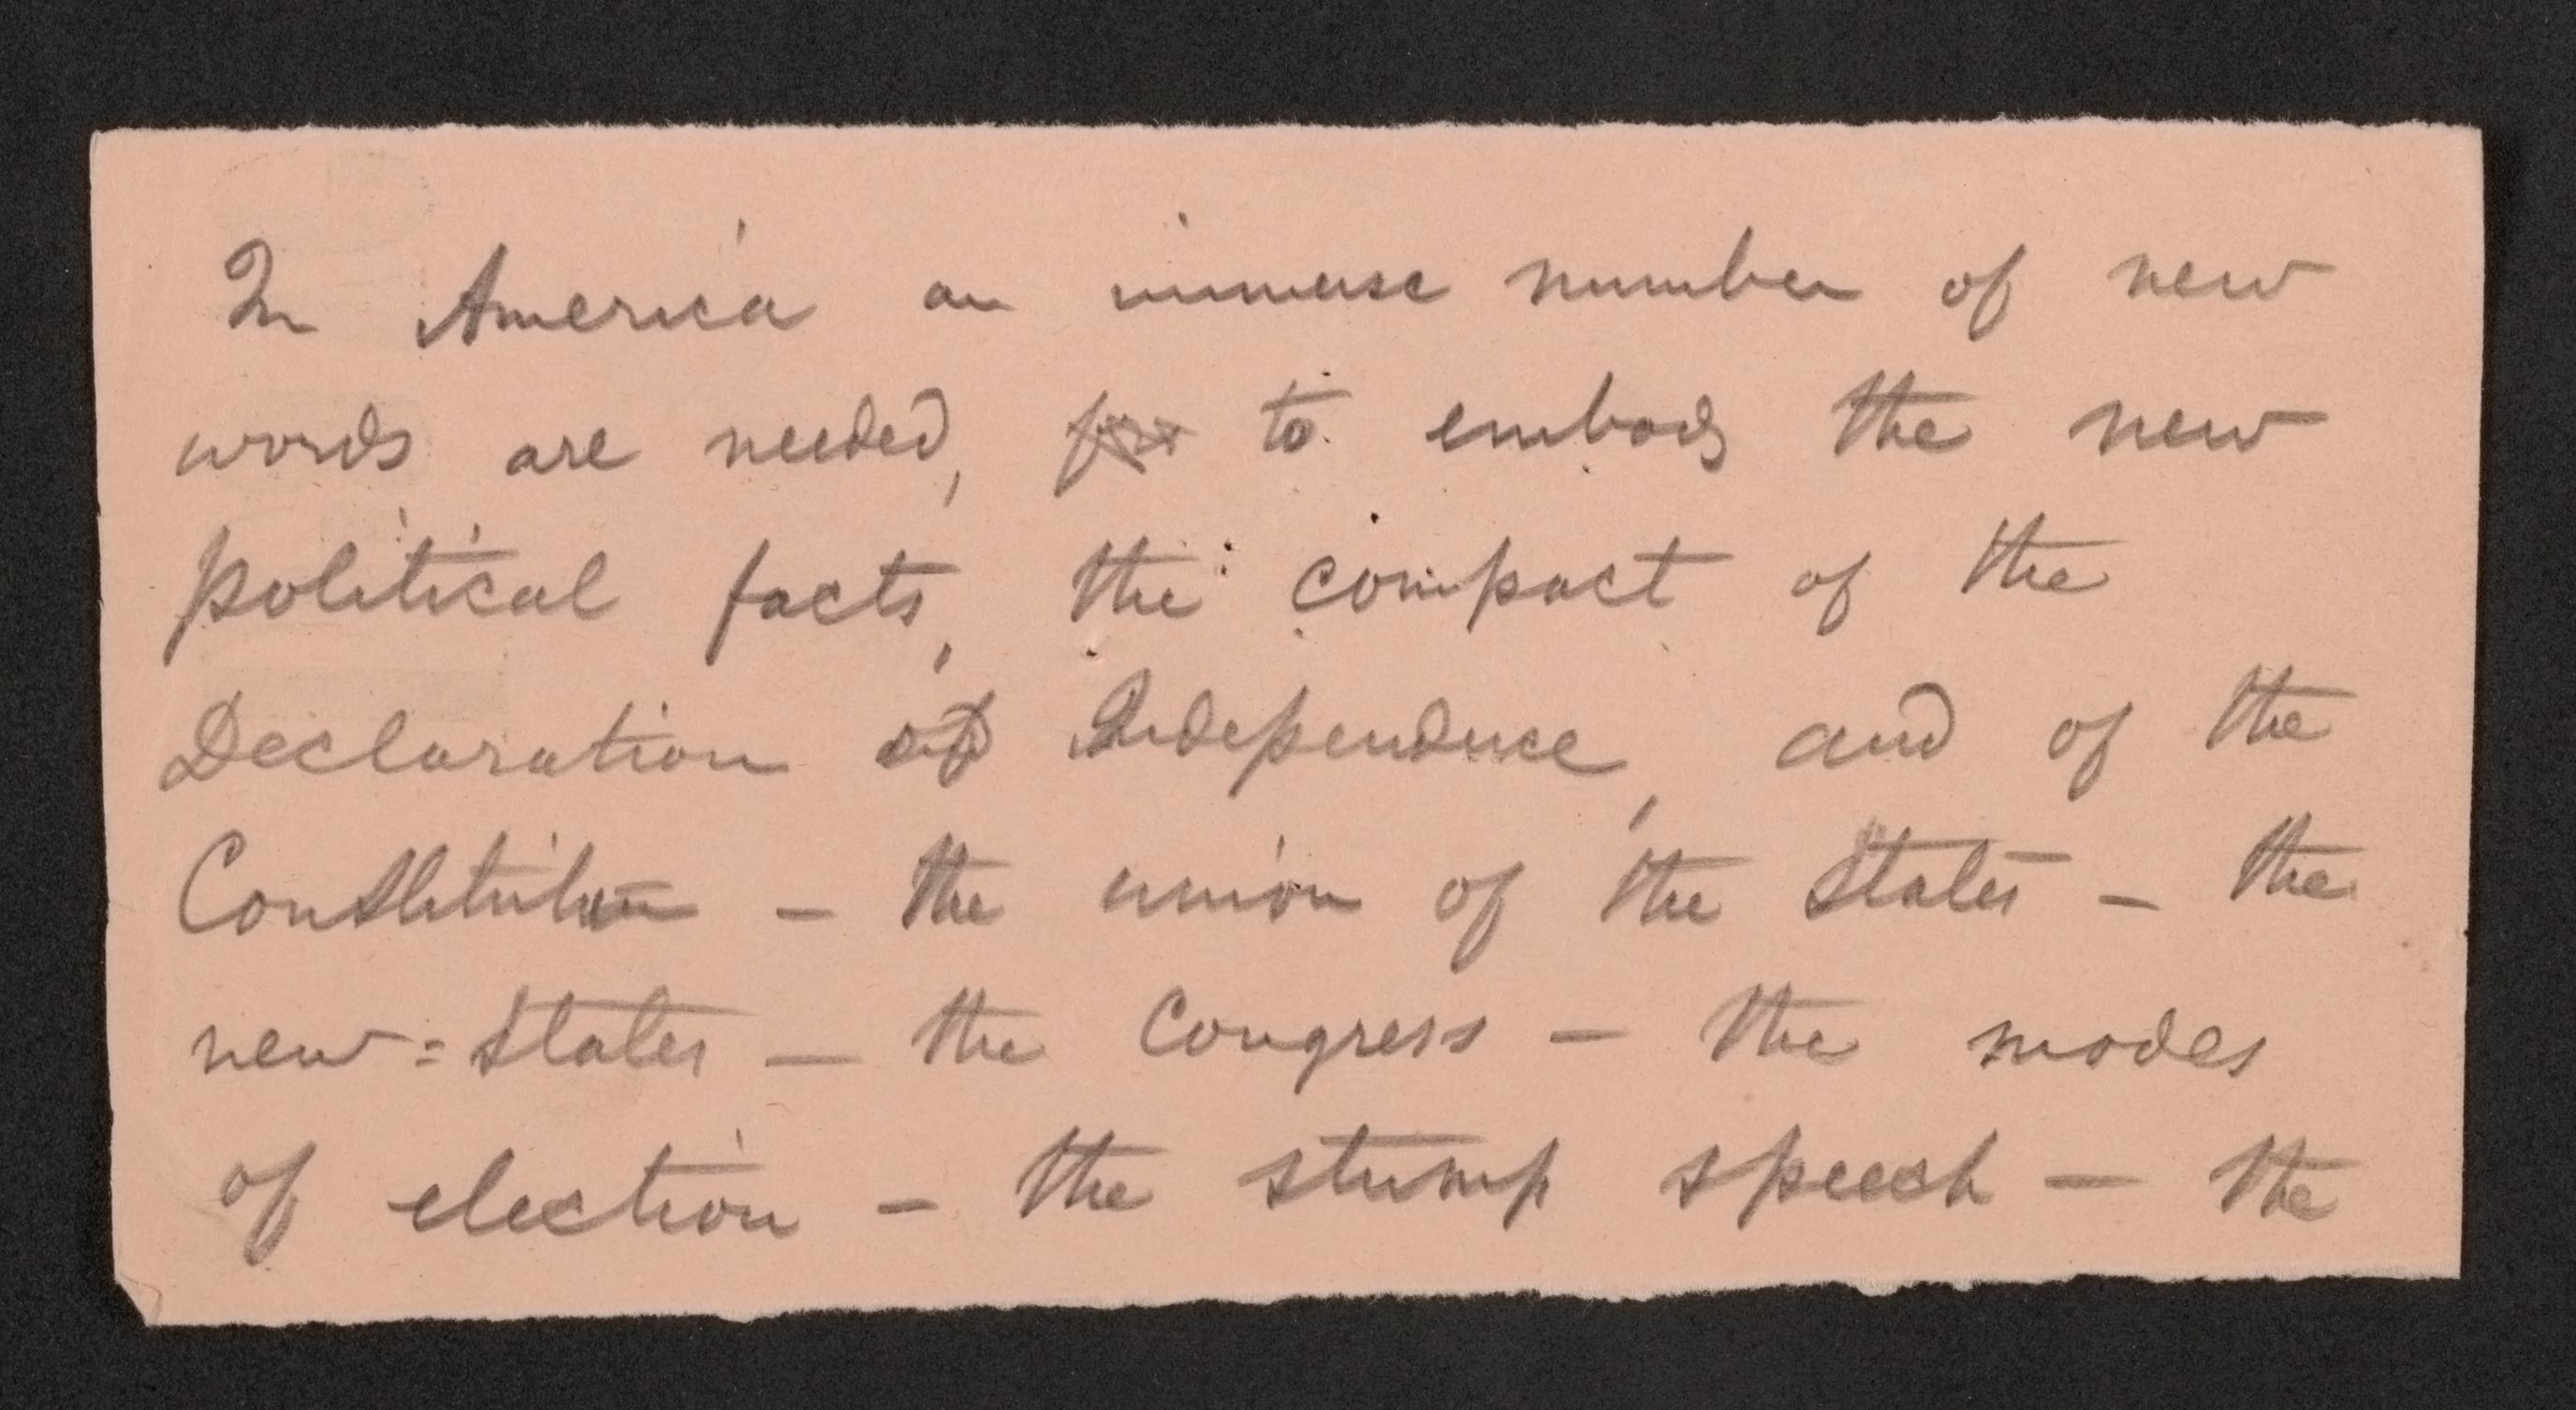 In America an immense number of new
words are needed, for to embody the new
political facts, the compact of the
Declaration of Independence, and of the
Constitution — the union of the States — the
new=States — the Congress — the modes
of election — the stump speech — the